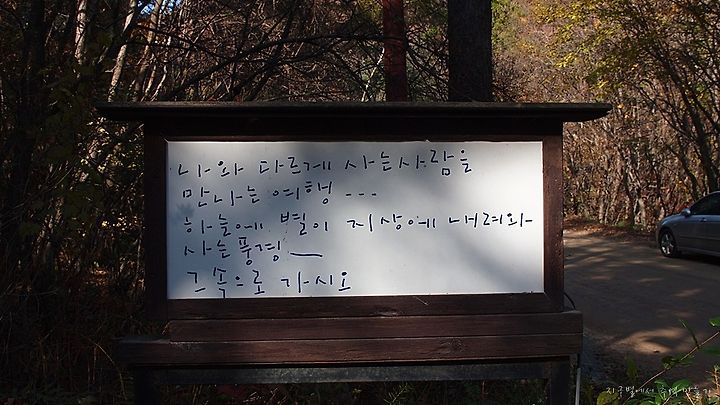 나와 다르게 사는 사람을
만나는 여행 ---
하늘에 별이 지상에 내려와
사는 풍경 —
그 속으로 가시오
지구별에서 추억만들기